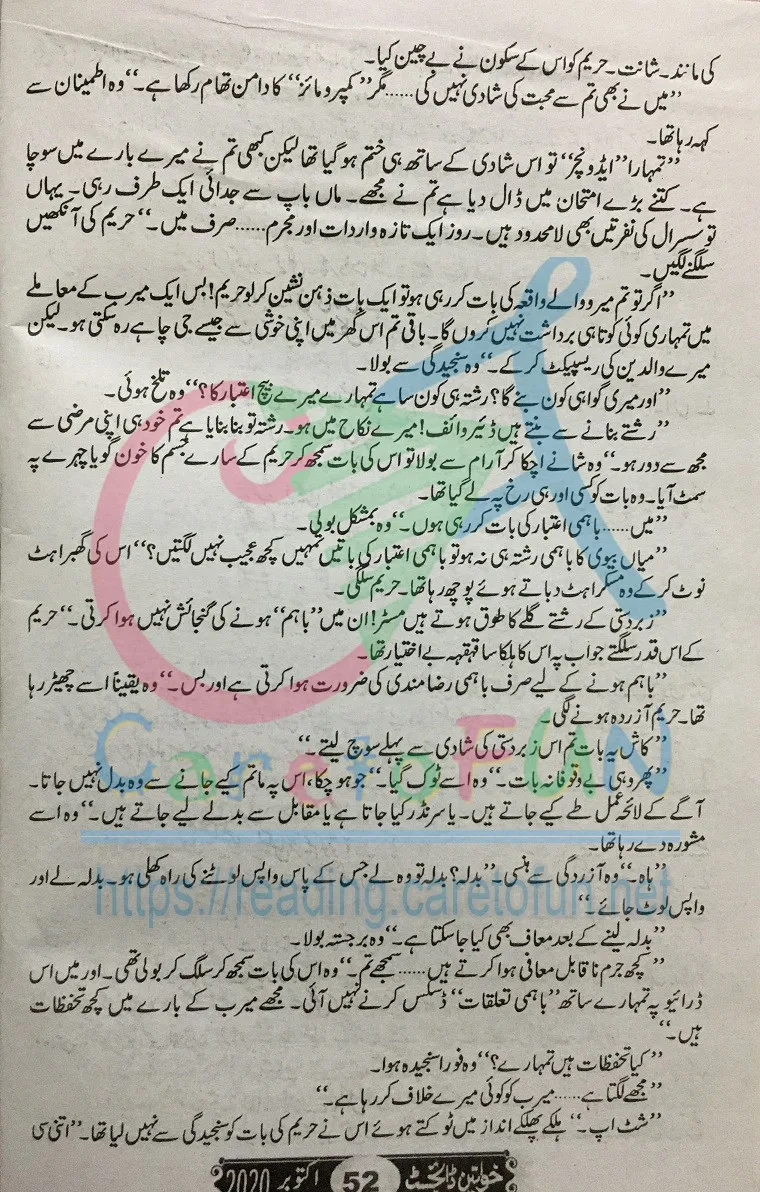 کی مانند۔ شانت۔ حریم کو اس کے سکون نے بے چین کیا۔
”میں نے بھی تم سے محبت کی شادی نہیں کی...... مگر ”کمپرومائز“ کا دامن تھام رکھا ہے۔“ وہ اطمینان سے
کہہ رہا تھا۔
”تمہارا ”ایڈونچر“ تو اس شادی کے ساتھ ہی ختم ہو گیا تھا لیکن کبھی تم نے میرے بارے میں سوچا
ہے۔ کتنے بڑے امتحان میں ڈال دیا ہے تم نے مجھے۔ ماں باپ سے جدائی ایک طرف رہی۔ یہاں
تو سسرال کی نفرتیں بھی لامحدود ہیں۔ روز ایک تازہ واردات اور مجرم...... صرف میں۔“ حریم کی آنکھیں
سلگنے لگیں۔
”اگر تو تم میرو والے واقعہ کی بات کر رہی ہو تو ایک بات ذہن نشین کر لو حریم! بس ایک میرب کے معاملے
میں تمہاری کوئی کوتاہی برداشت نہیں کروں گا۔ باقی تم اس گھر میں اپنی خوشی سے جیسے جی چاہے رہ سکتی ہو۔ لیکن
میرے والدین کی ریسپیکٹ کر کے۔“ وہ سنجیدگی سے بولا۔
”اور میری گواہی کون بنے گا؟ رشتہ ہی کون سا ہے تمہارے میرے بیچ اعتبار کا؟“ وہ تلخ ہوئی۔
”رشتے بنانے سے بنتے ہیں ڈئیر وائف! میرے نکاح میں ہو۔ رشتہ تو بنا بنایا ہے تم خود ہی اپنی مرضی سے
مجھ سے دور ہو۔“ وہ شانے اچکا کر آرام سے بولا تو اس کی بات سمجھ کر حریم کے سارے جسم کا خون گویا چہرے پہ
سمٹ آیا۔ وہ بات کو کسی اور ہی رخ پہ لے گیا تھا۔
”میں...... باہمی اعتبار کی بات کر رہی ہوں۔“ وہ بمشکل بولی۔
”میاں بیوی کا باہمی رشتہ ہی نہ ہو تو باہمی اعتبار کی باتیں تمہیں کچھ عجیب نہیں لگتیں؟“ اس کی گھبراہٹ
نوٹ کر کے وہ مسکراہٹ دباتے ہوئے پوچھ رہا تھا۔ حریم سلگی۔
”زبردستی کے رشتے گلے کا طوق ہوتے ہیں مسٹر! ان میں ”باہم“ ہونے کی گنجائش نہیں ہوا کرتی۔“ حریم
کے اس قدر سلگتے جواب پہ اس کا ہلکا سا قہقہہ بے اختیار تھا۔
”باہم ہونے کے لیے صرف باہمی رضا مندی کی ضرورت ہوا کرتی ہے اور بس۔“ وہ یقیناً اسے چھیڑ رہا
تھا۔ حریم آزردہ ہونے لگی۔
”کاش یہ بات تم اس زبردستی کی شادی سے پہلے سوچ لیتے۔“
”پھر وہی بے وقوفانہ بات۔“ وہ اسے ٹوک گیا۔ ”جو ہو چکا، اس پہ ماتم کیے جانے سے وہ بدل نہیں جاتا۔
آگے کے لائحہ عمل طے کیے جاتے ہیں۔ یا سرنڈر کیا جاتا ہے یا مقابل سے بدلے لیے جاتے ہیں۔“ وہ اسے
مشورہ دے رہا تھا۔
”ہاہ۔“ وہ آزردگی سے ہنسی۔ ”بدلہ؟ بدلہ تو وہ لے جس کے پاس واپس لوٹنے کی راہ کھلی ہو۔ بدلہ لے اور
واپس لوٹ جائے۔“
”بدلہ لینے کے بعد معاف بھی کیا جا سکتا ہے۔“ وہ برجستہ بولا۔
”کچھ جرم ناقابل معافی ہوا کرتے ہیں...... سمجھے تم۔“ وہ اس کی بات سمجھ کر سلگ کر بولی تھی۔ اور میں اس
ڈرائیو پہ تمہارے ساتھ ”باہمی تعلقات“ ڈسکس کرنے نہیں آئی۔ مجھے میرب کے بارے میں کچھ تحفظات
ہیں۔“
”کیا تحفظات ہیں تمہارے؟“ وہ فوراً سنجیدہ ہوا۔
”مجھے لگتا ہے...... میرب کو کوئی میرے خلاف کر رہا ہے۔“
”شٹ اپ۔“ ہلکے پھلکے انداز میں ٹوکتے ہوئے اس نے حریم کی بات کو سنجیدگی سے نہیں لیا تھا۔ ”اتنی سی
CaretoFUN
https://reading.caretofun.net
خواتین ڈائجسٹ 52 اکتوبر 2020